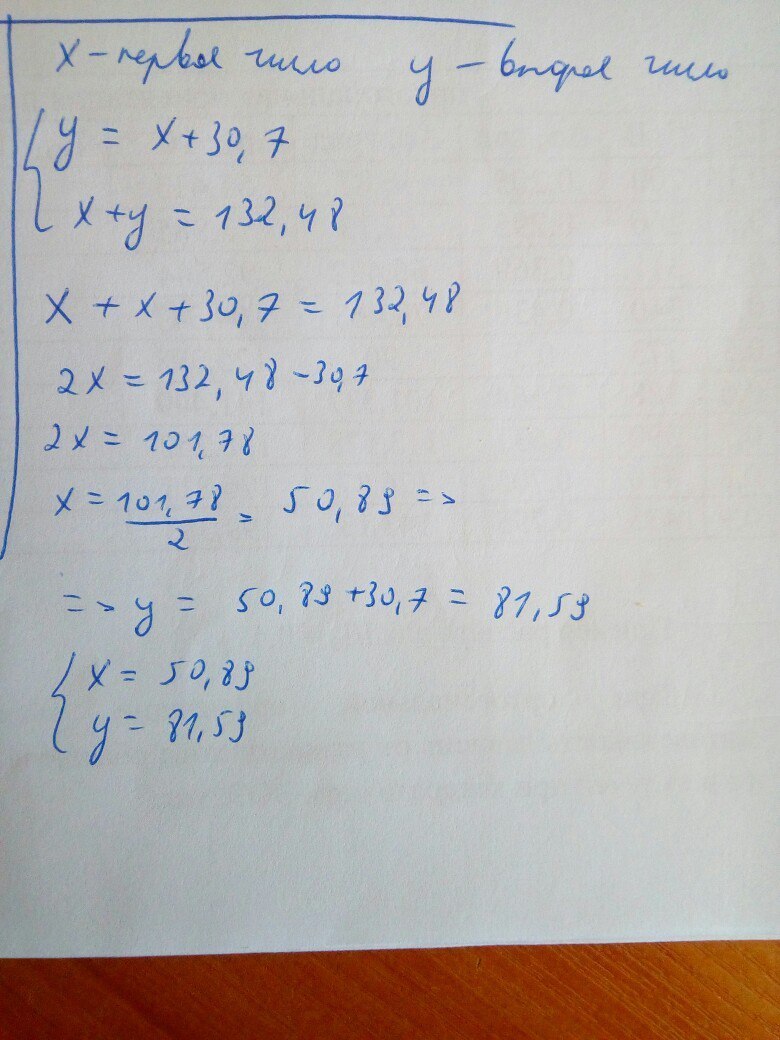 x - первое число y - второе число
y = x + 30,7
x + y = 132,48
x + x + 30,7 = 132,48
2x = 132,48 - 30,7
2x = 101,78
x = 101,78/2 = 50,89 =>
=> y = 50,89 + 30,7 = 81,59
x = 50,89
y = 81,59